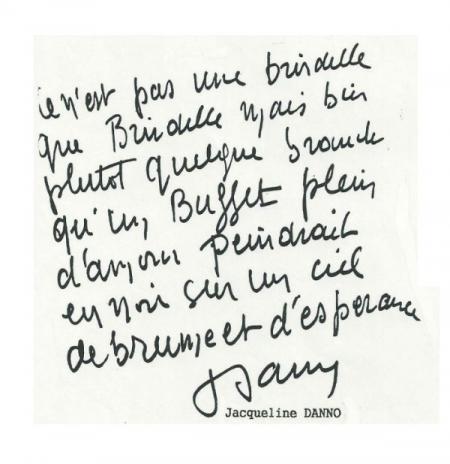 ce n'est pas une brindille
que Brindille mais bien
plutot quelque branche
qu'un Buffet plein
d'amour peindrait
en noir sur un ciel
de brume et d'esperance
Jacqueline DANNO